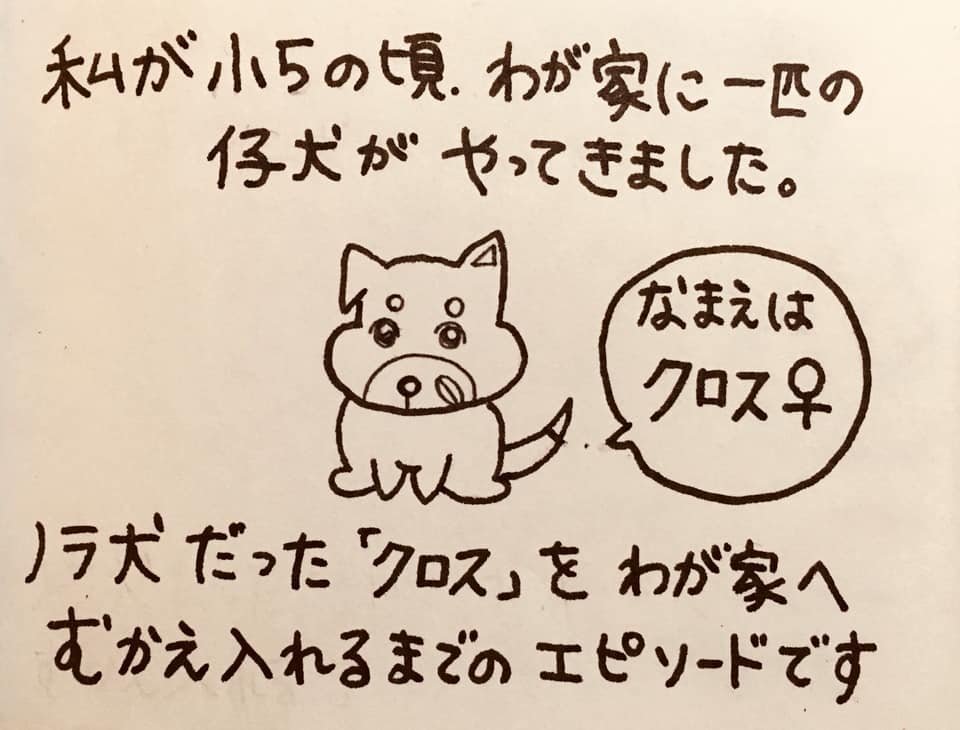 私が小5の頃、わが家に一匹の
仔犬がやってきました。
なまえは
クロス♀
ノラ犬だった「クロス」をわが家へ
むかえ入れるまでのエピソードです